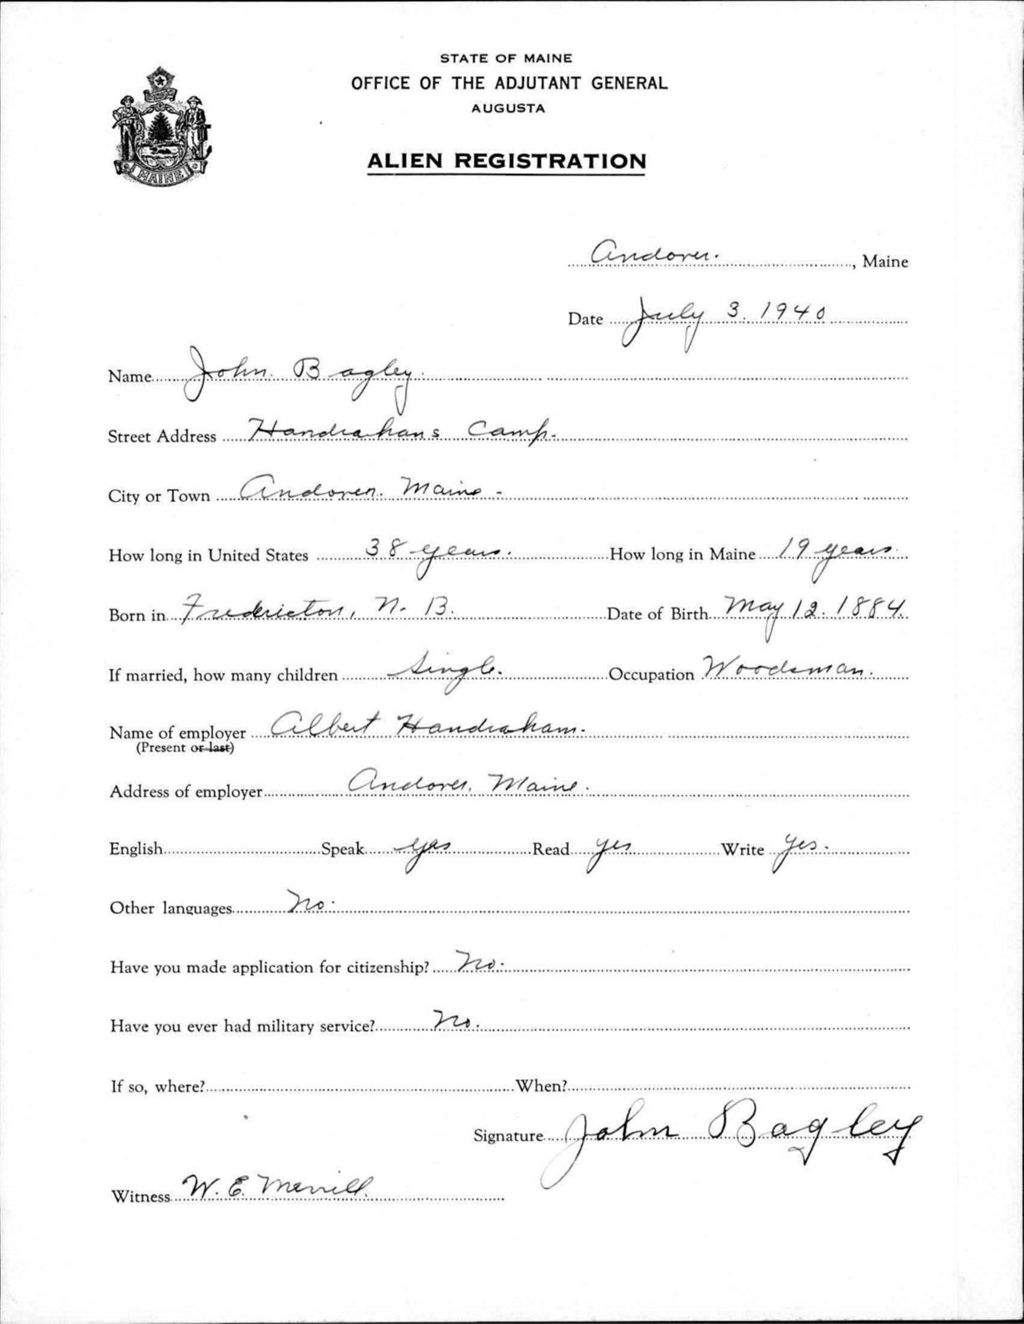 STATE OF MAINE
OFFICE OF THE ADJUTANT GENERAL
AUGUSTA
ALIEN REGISTRATION
MAINE
Andover. , Maine
Date July 3. 1940
Name John Bagley.
Street Address Handrahans Camp.
City or Town Andover. Maine -
How long in United States 38 years. How long in Maine 19 years
Born in Fredericton, N. B. Date of Birth May 12. 1884.
If married, how many children Single. Occupation Woodsman.
Name of employer Albert Handraham.
(Present or last)
Address of employer Andover. Maine.
English Speak yes Read yes Write yes.
Other languages No.
Have you made application for citizenship? No.
Have you ever had military service? No.
If so, where? When?
Signature John Bagley
Witness W. E. Merrill.